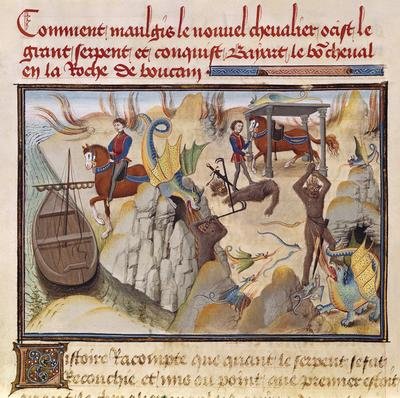 Comment maulgis le nouvel chevalier ocist le
grant serpent et conquist Bayart le bo cheval
en la Roche de boucam
istoire Racompte que quant le serpent se fut
Recouchie et mis ou point que premier estoit